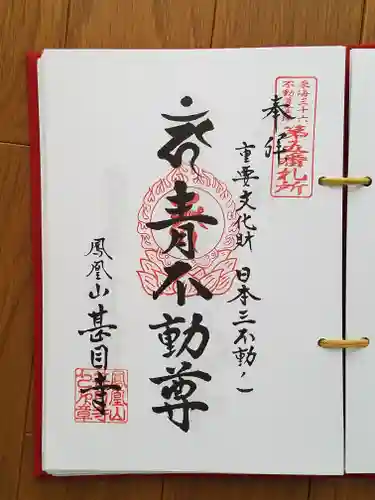 東海三十六
不動尊霊場
第五番札所
奉拝
重要文化財 日本三不動ノ一
青不動尊
鳳凰山 甚目寺
鳳凰山